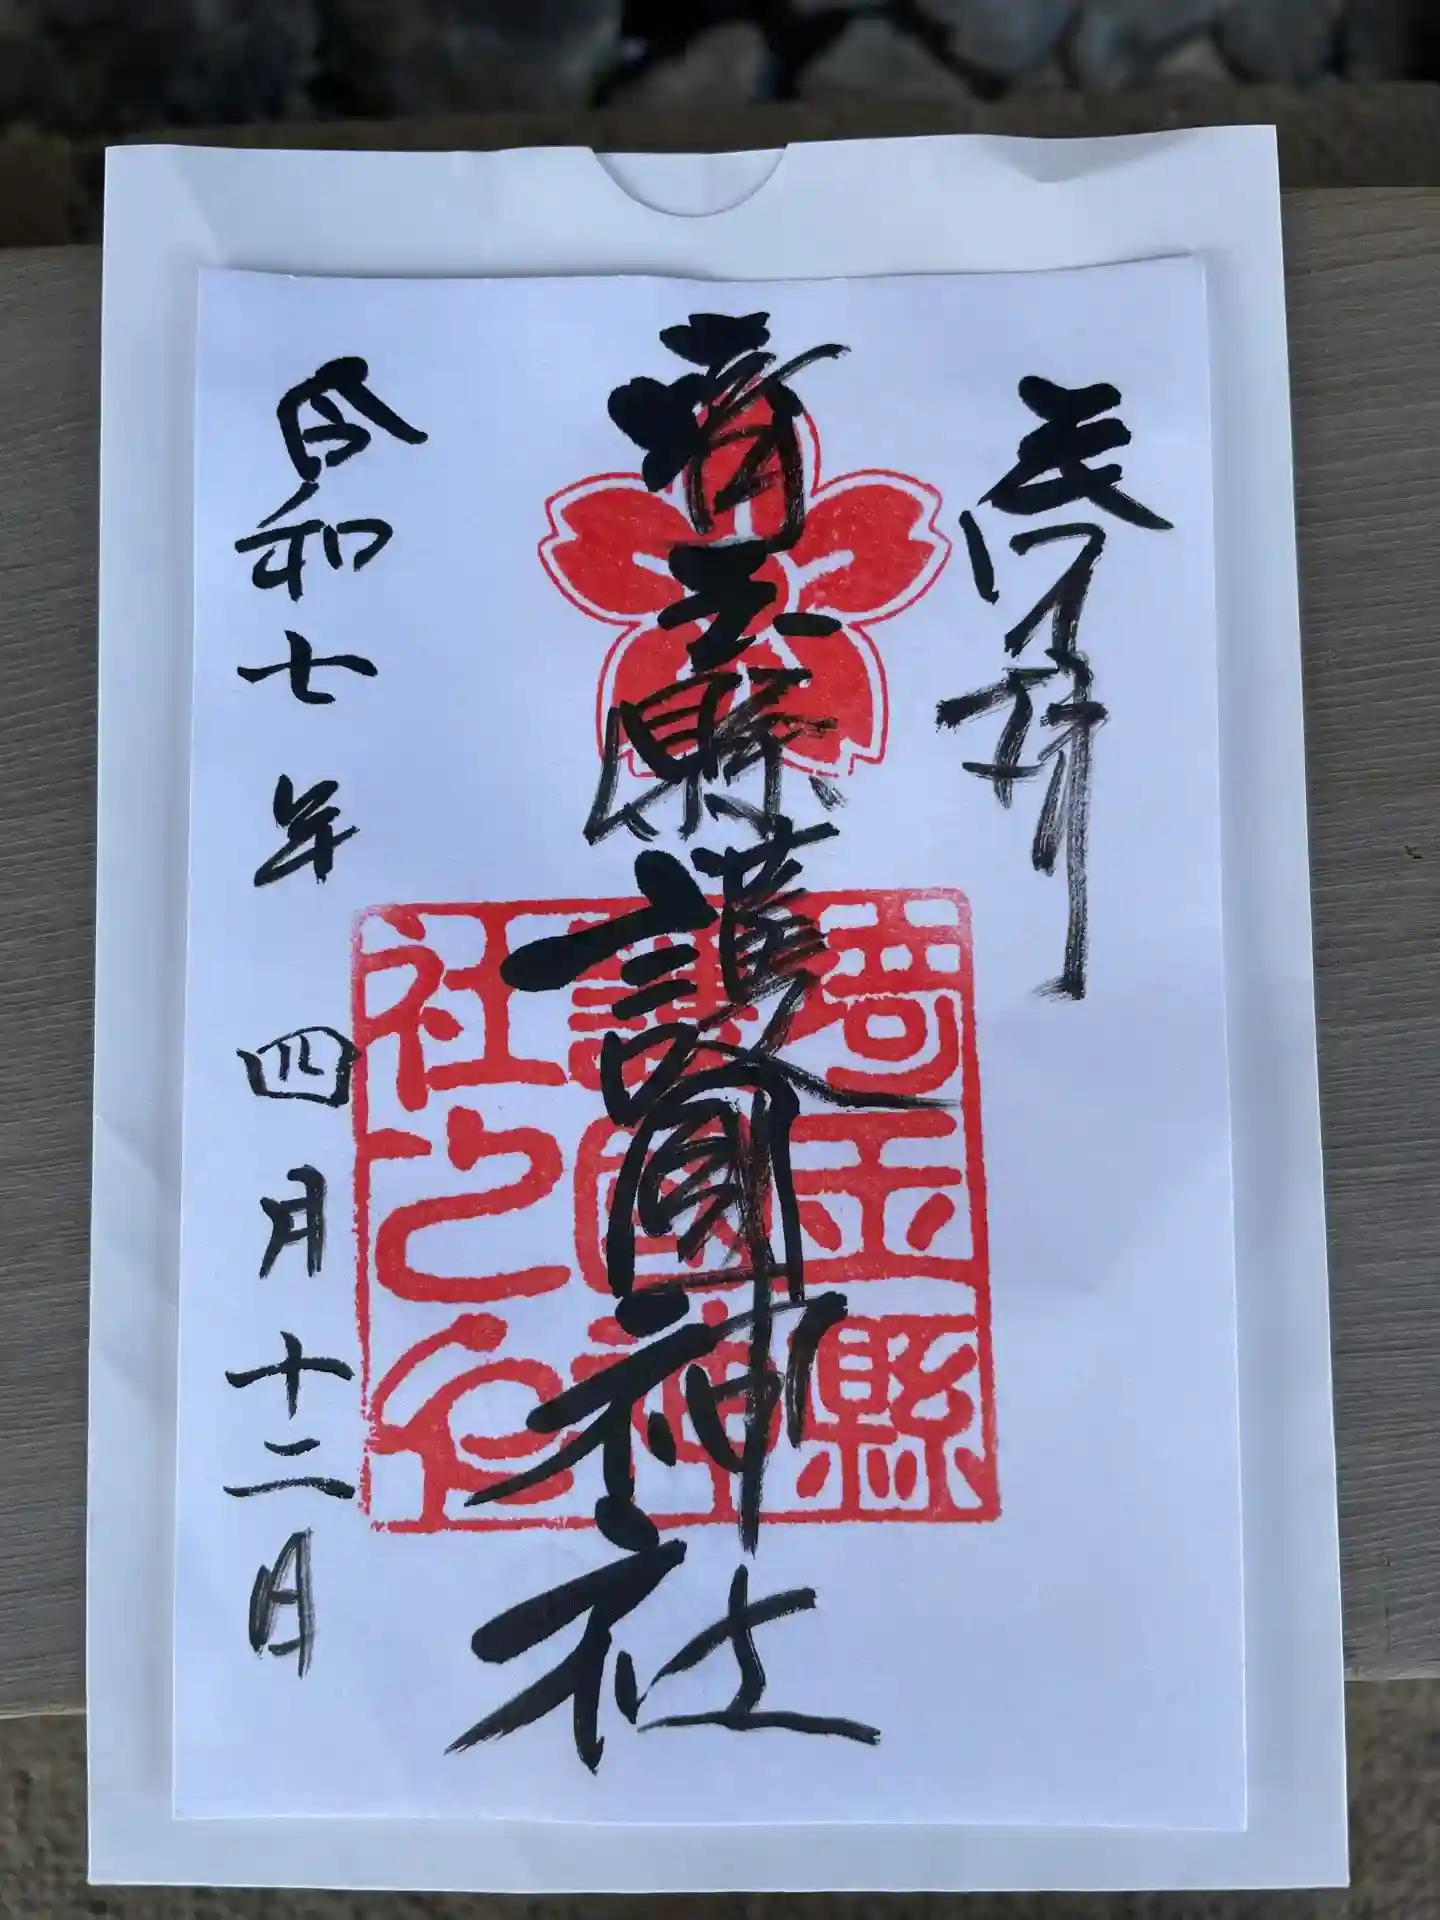 奉拝
埼玉縣護國神社
令和七年 四月十二日
埼玉縣
護國神
社之印